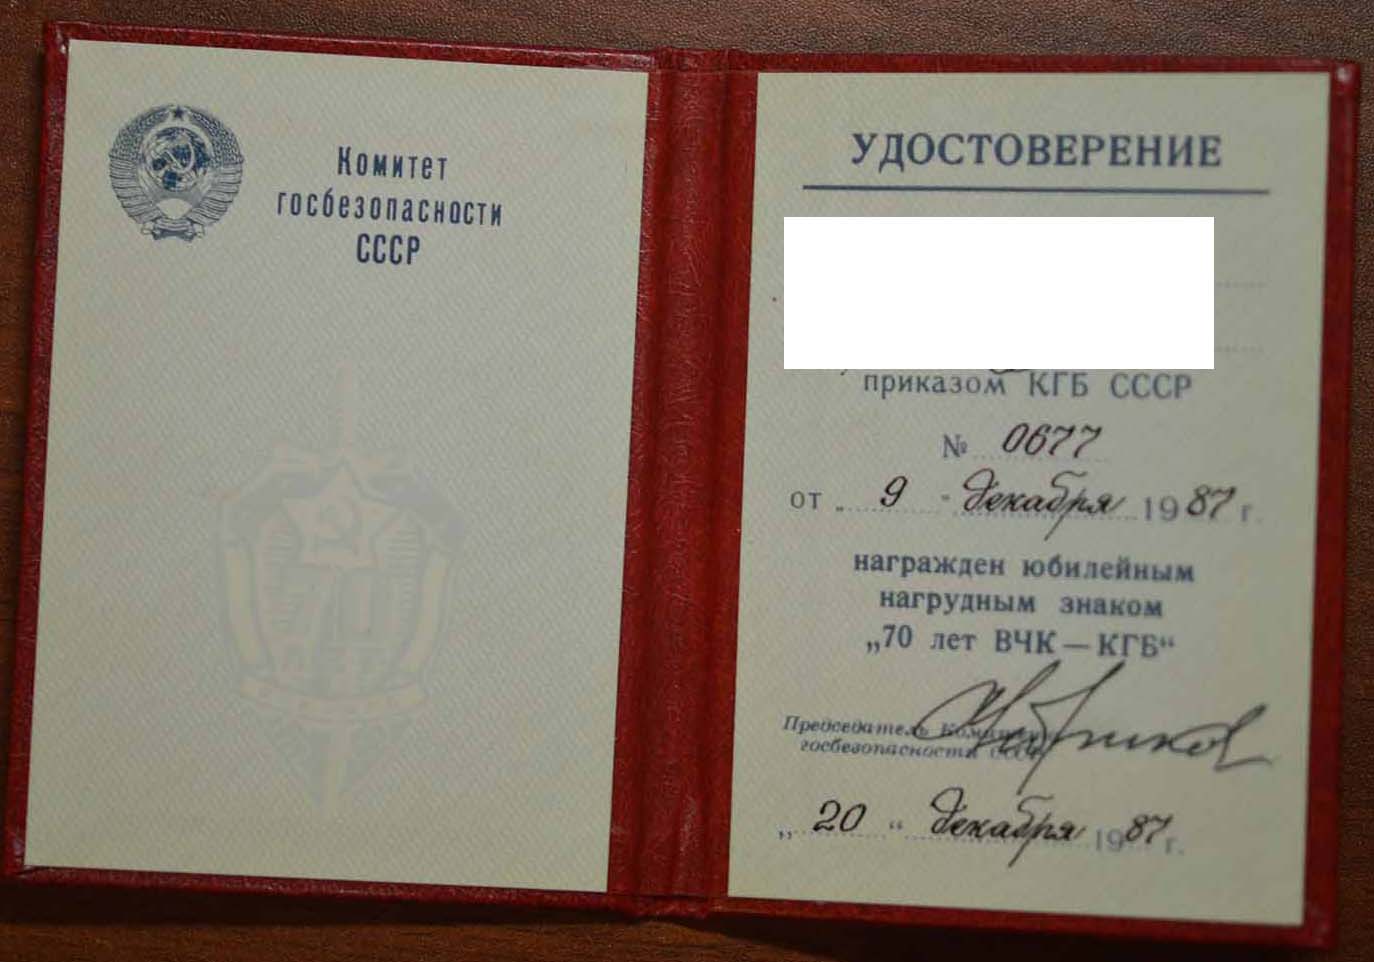 Комитет
госбезопасности
СССР
УДОСТОВЕРЕНИЕ
приказом КГБ СССР
№ 0677
от „ 9 " декабря 1987 г.
награжден юбилейным
нагрудным знаком
„70 лет ВЧК — КГБ“
Председатель Комитета
госбезопасности СССР
„ 20 “ декабря 1987 г.